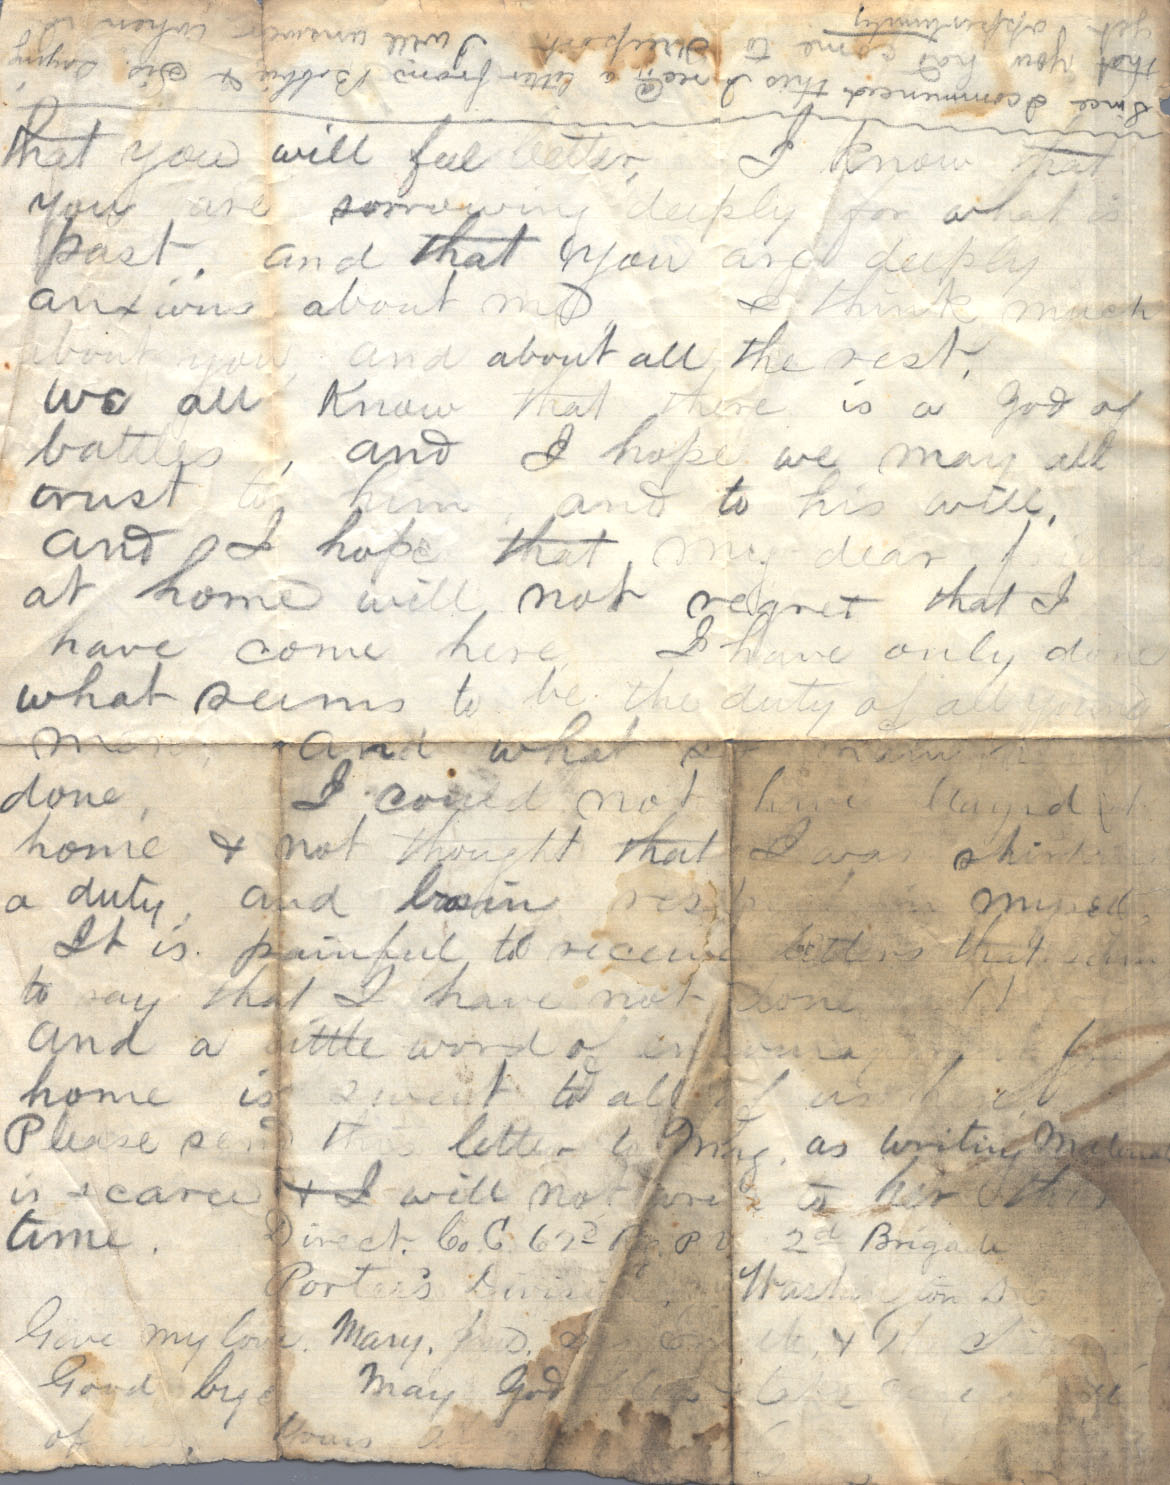 Since I commenced this I rec'd a letter from Bobbie & Sis. saying
that you had come to Freeport. I will answer when I
get opportunity
that you will feel better. I know that
you are sorrowing deeply for what is
past. and that you are deeply
anxious about me I think much
about you, and about all the rest.
we all know that there is a God of
battles, and I hope we may all
trust to him, and to his will.
and I hope that my dear friends
at home will not regret that I
have come here. I have only done
what seems to be the duty of all young
men, and what
done. I could not have stayed at
home & not thought that I was shirking
a duty, and
It is painful to receive letters that seem
to say that I have not done
and a little word of encouragement from
home is sweet to all of us here.
Please send this letter to Mag. as writing material
is scarce & I will not write to her this
time. Direct. Co. C. 62d Reg. P. V. 2d Brigade
Porter's Division Washington D.C.
Give my love. Mary. &
Good bye May God
of us. Yours